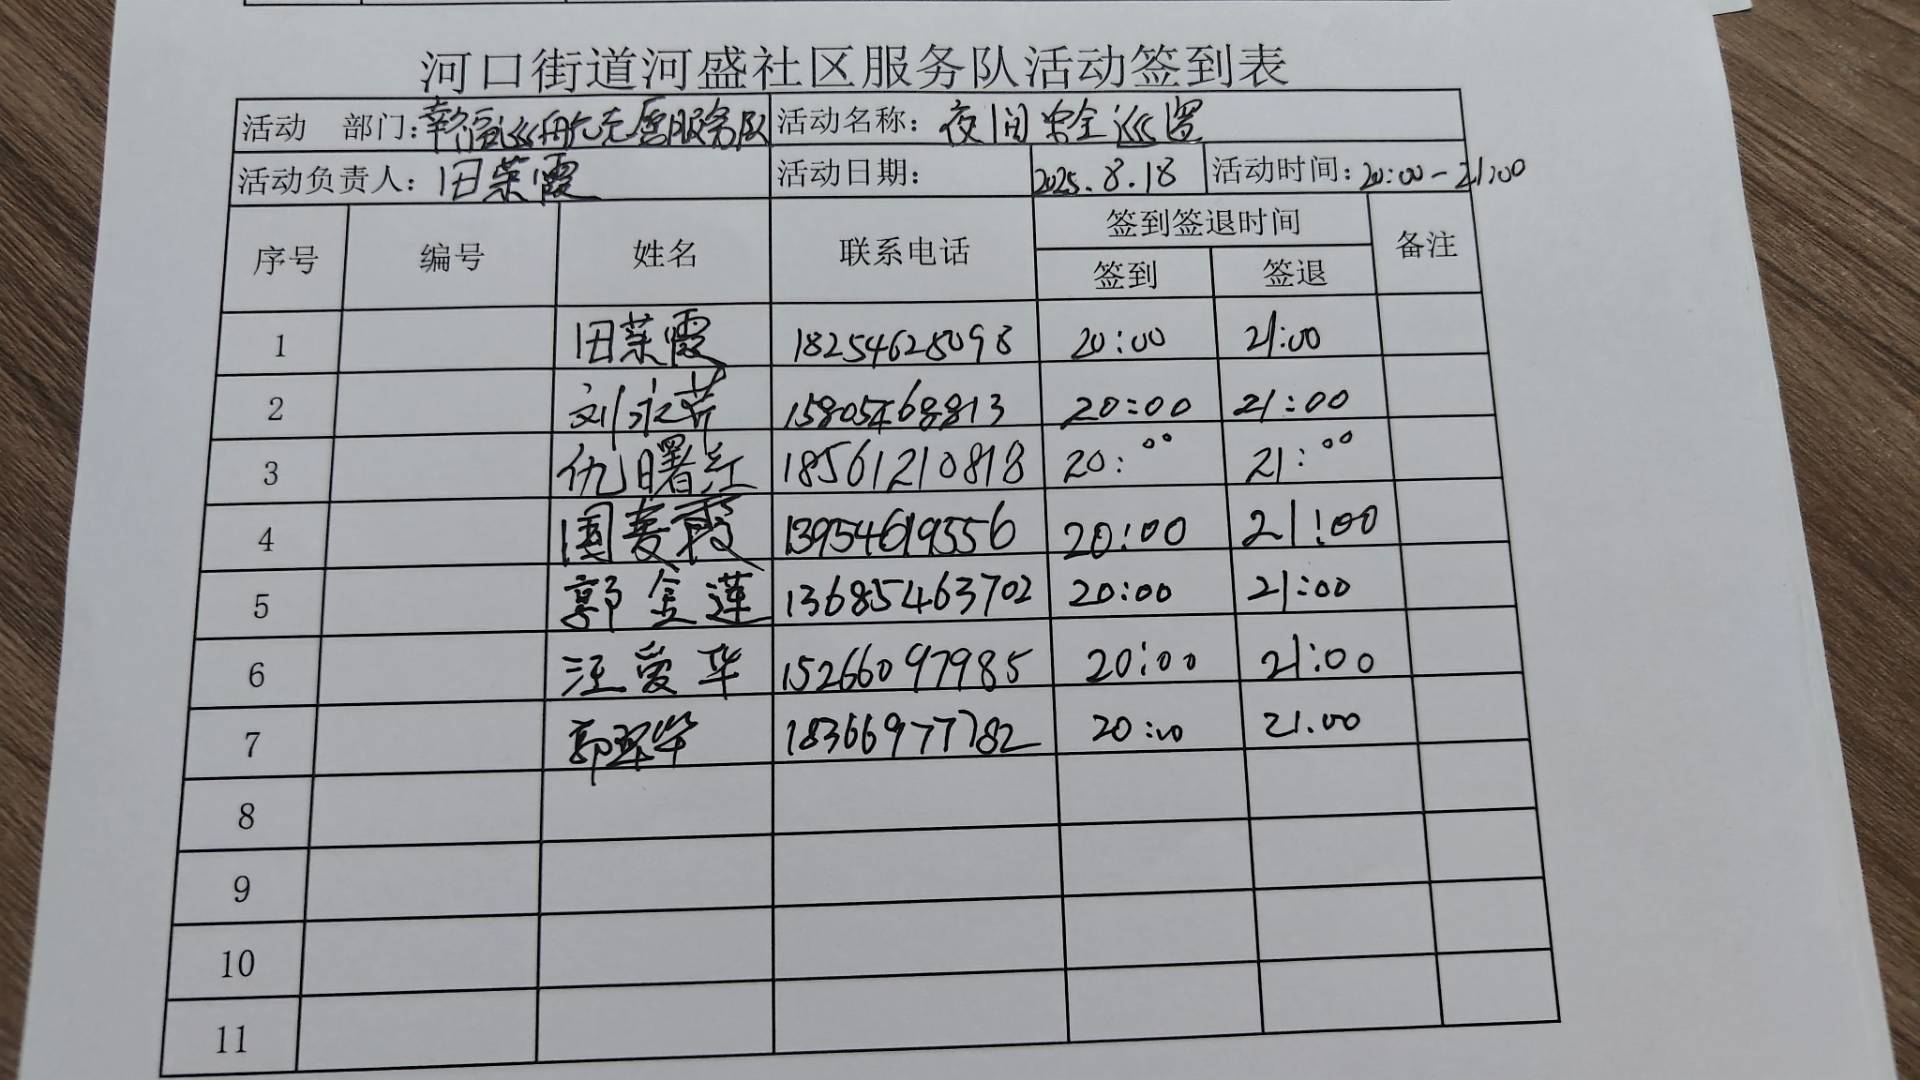 河口街道河盛社区服务队活动签到表
活动 部门:幸福巡航志愿服务队 活动名称: 夜间安全巡逻
活动负责人: 田荣霞 活动日期: 2025.8.18 活动时间: 20:00-21:00
序号 编号 姓名 联系电话 签到签退时间 备注
签到 签退
1 田荣霞 18254628098 20:00 21:00
2 刘永芹 15805468813 20:00 21:00
3 仇曙红 18561210818 20:00 21:00
4 国麦霞 13954619556 20:00 21:00
5 郭金莲 13685463702 20:00 21:00
6 汪爱华 15266097985 20:00 21:00
7 郭翠华 18366977782 20:00 21.00
8
9
10
11